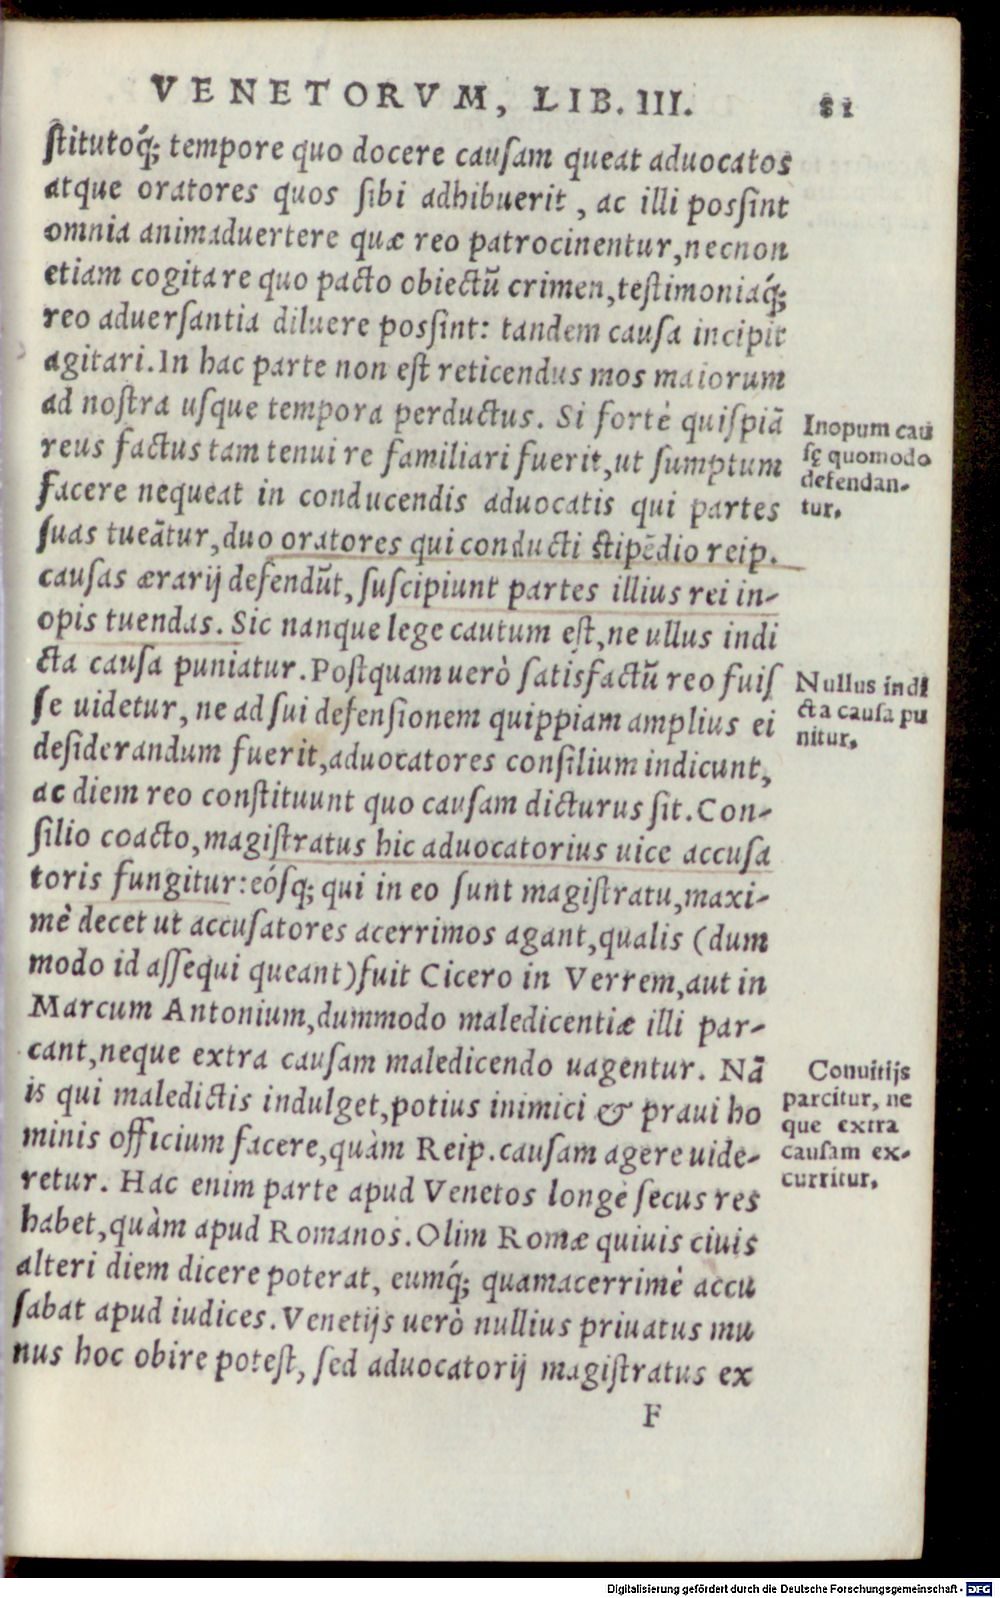 VENETORVM, LIB. III. 81
stitutoq́; tempore quo docere causam queat aduocatos
atque oratores quos sibi adhibuerit, ac illi possint
omnia animaduertere quæ reo patrocinentur, necnon
etiam cogitare quo pacto obiectũ crimen, testimoniaq́;
reo aduersantia diluere possint: tandem causa incipit
agitari. In hac parte non est reticendus mos maiorum
ad nostra usque tempora perductus. Si fortè quispiã
reus factus tam tenui re familiari fuerit, ut sumptum
facere nequeat in conducendis aduocatis qui partes
suas tueãtur, duo oratores qui conducti stipẽdio reip.
causas ærarij defendũt, suscipiunt partes illius rei in-
opis tuendas. Sic nanque lege cautum est, ne ullus indi
cta causa puniatur. Postquam uerò satisfactũ reo fuis
se uidetur, ne ad sui defensionem quippiam amplius ei
desiderandum fuerit, aduocatores consilium indicunt,
ac diem reo constituunt quo causam dicturus sit. Con-
silio coacto, magistratus hic aduocatorius uice accusa
toris fungitur: eósq; qui in eo sunt magistratu, maxi-
mè decet ut accusatores acerrimos agant, qualis (dum
modo id assequi queant) fuit Cicero in Verrem, aut in
Marcum Antonium, dummodo maledicentiæ illi par-
cant, neque extra causam maledicendo uagentur. Nã
is qui maledictis indulget, potius inimici & praui ho
minis officium facere, quàm Reip. causam agere uide-
retur. Hac enim parte apud Venetos longè secus res
habet, quàm apud Romanos. Olim Romæ quiuis ciuis
alteri diem dicere poterat, eumq́; quamacerrimè accu
sabat apud iudices. Venetijs uerò nullius priuatus mu
nus hoc obire potest, sed aduocatorij magistratus ex
F
Inopum cau
sę quomodo
defendan-
tur.
Nullus indi
cta causa pu
nitur.
Conuitijs
parcitur, ne
que extra
causam ex-
curritur.
Digitalisierung gefördert durch die Deutsche Forschungsgemeinschaft - DFG